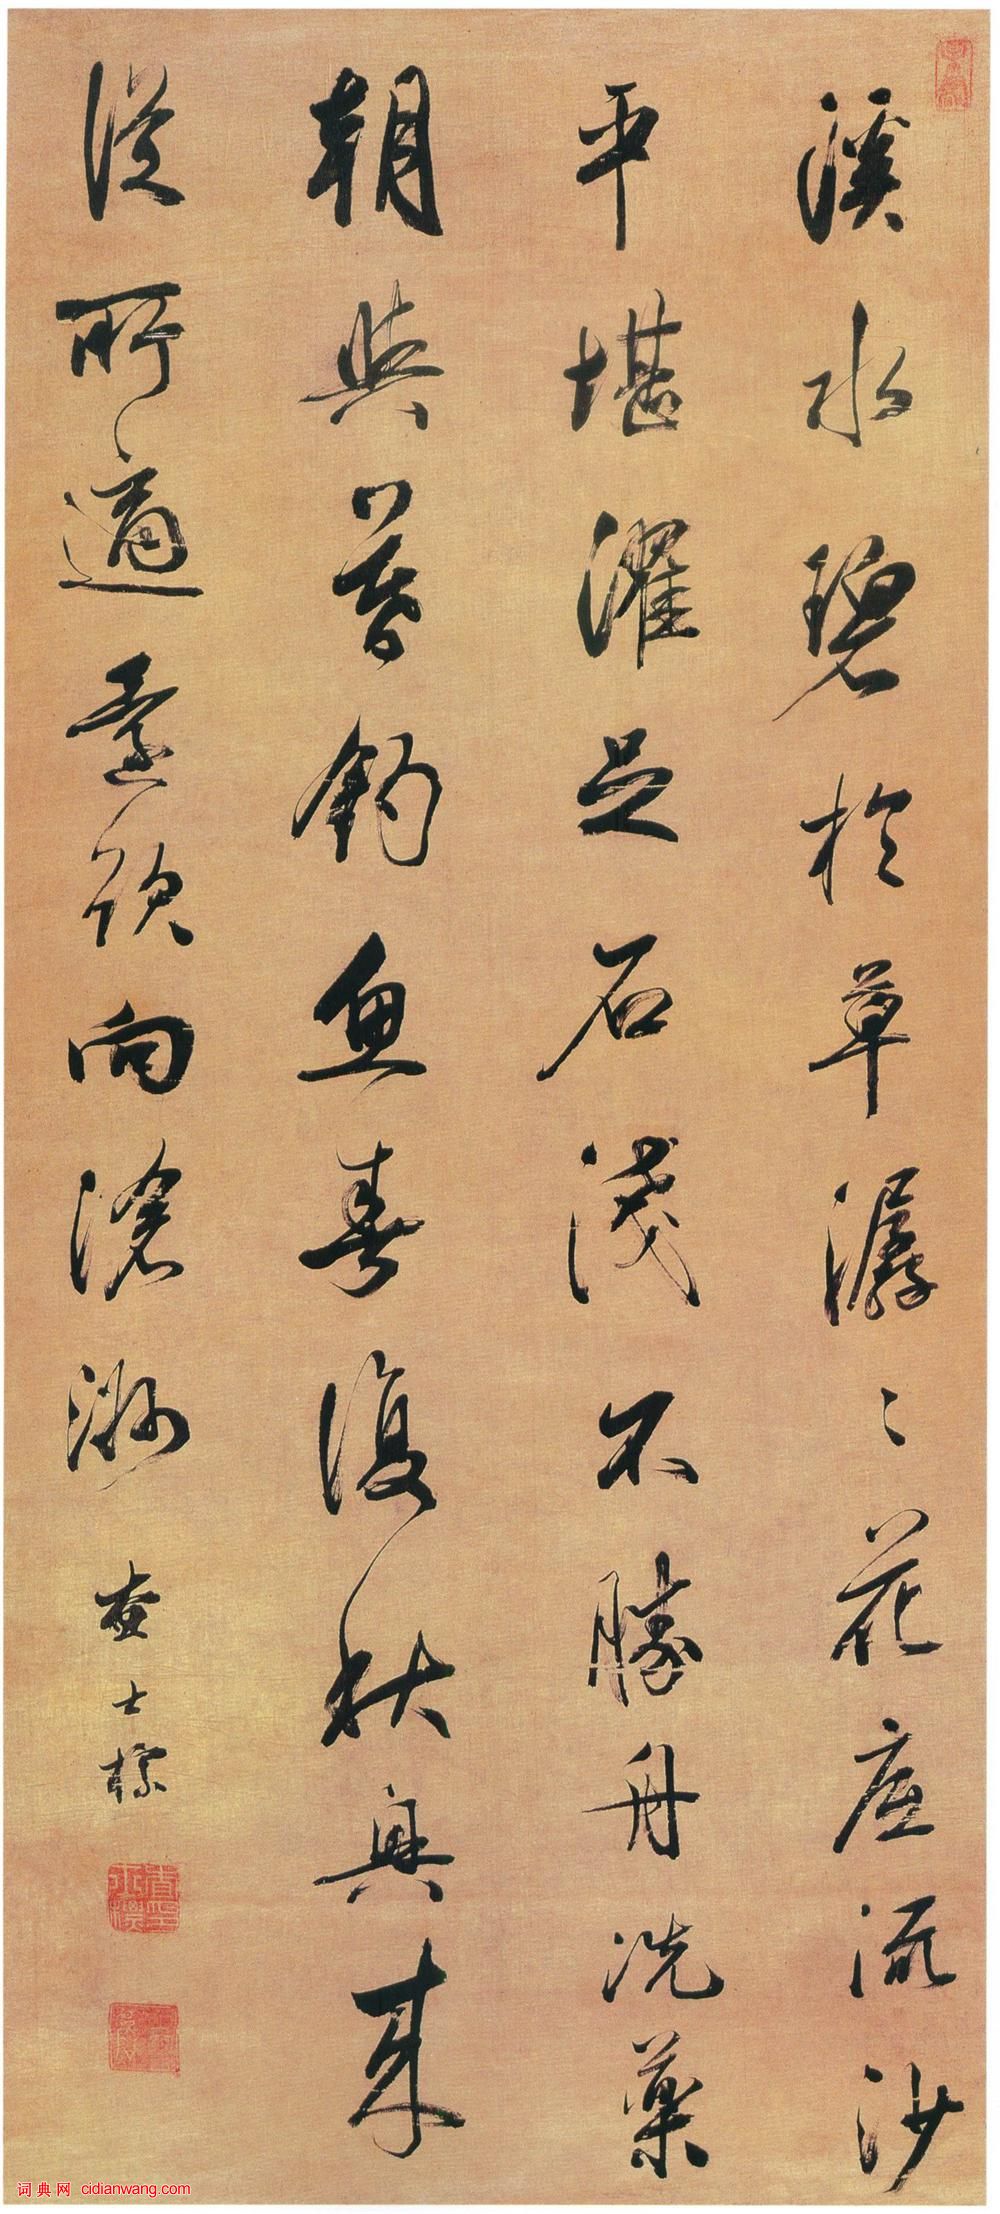 溪水碧於草潺〻花底流沙
平堪濯足石淺不勝舟洗藥
朝與暮釣魚春復秋興來
從所適還欲向滄洲 查士標
词典网 cidianwang.com